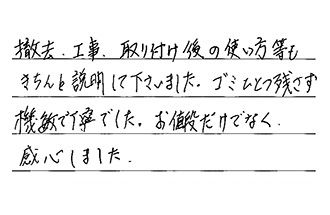 撤去、工事、取り付け後の使い方等も
きちんと説明して下さいました。ゴミひとつ残さず
機敏で丁寧でした。お値段だけでなく、
感心しました。